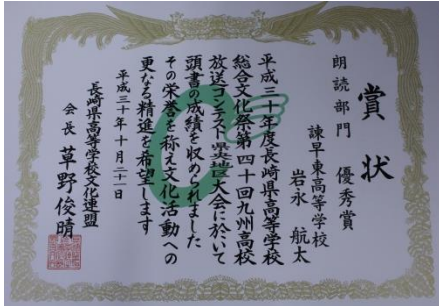 賞状
朗読部門 優秀賞
諫早東高等学校
岩永 航太
平成三十年度長崎県高等学校
総合文化祭第四十回九州高校
放送コンテスト県大会に於いて
頭書の成績を収めれました
その栄誉を称え文化活動への
更なる精進を希望します
平成三十年十月二十一日
長崎県高等学校文化連盟
会長 草野俊晴